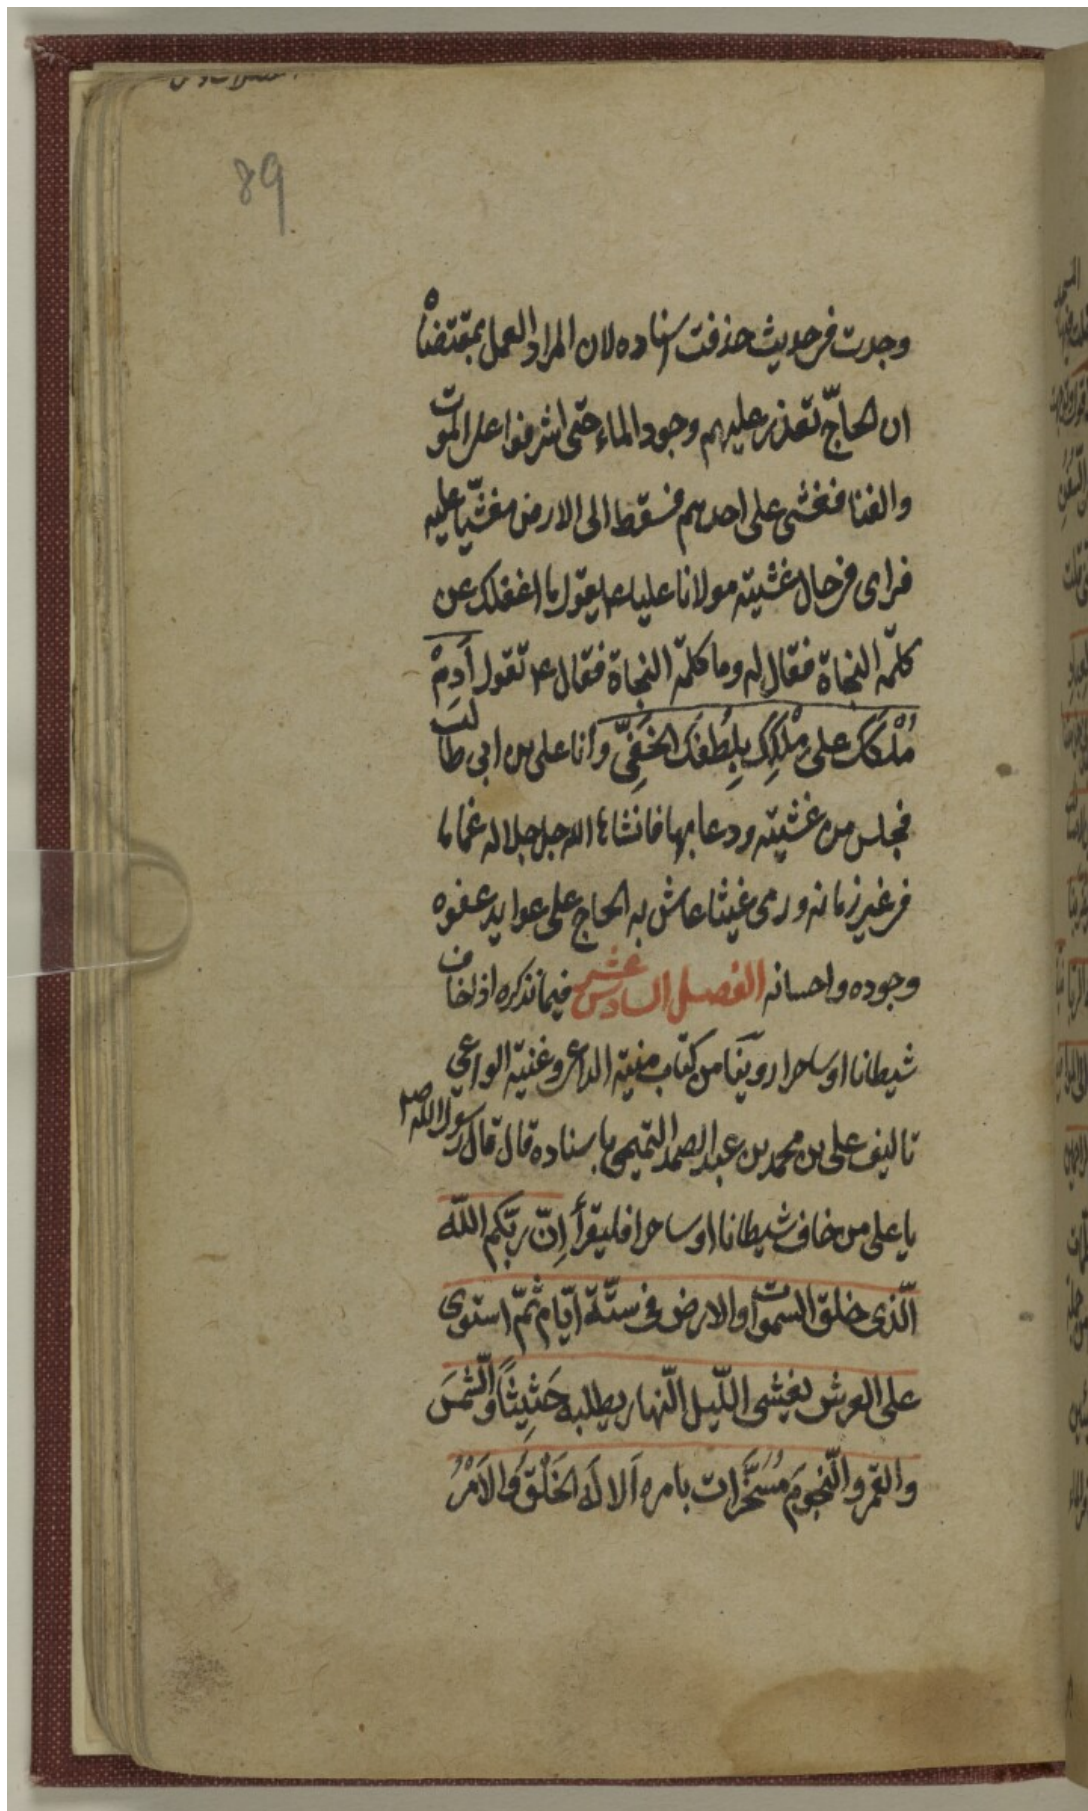 89
وجدت فی حدیث حذفت اسناده لان المراد العمل بمقتضاه
ان الحاجّ تعذر علیهم وجود الماء حتی اشرفوا علی الموت
والفنا فغشی علی احدهم فسقط الی الارض مغشیّا علیه
فرای فی حال غشیته مولانا علیا ع یقول ما اغفلک عن
کلمة النجاة فقال له وما کلمة النجاة فقال ع تقول أَدِمْ
مُلْکَکَ علی مُلْکِکَ بِلُطْفِکَ الخَفِیِّ وانا علی بن ابی طالب
فجلس من غشیته ودعا بها فانشاء الله جل جلاله غماما
فی غیر زمانه ورمی غیثا عاش به الحاج علی عواید عفوه
وجوده واحسانه الفصل السادس عشر فیما نذکره اذا خاف
شیطانا او ساحرا روینا من کتاب منیة الداعی وغنیة الواعی
تالیف علی بن محمد بن عبد الصمد التمیمی باسناده قال قال رسول الله ص
یا علی من خاف شیطانا او ساحرا فلیقرأ اِنّ ربّکم اللّه
الّذی خلق السّموات والارض فی ستّة ایّام ثمّ استوی
علی العرش یغشی اللّیل النّهار یطلبه حَثِیثًا وَالشّمسَ
والقمر والنّجومَ مُسَخَّرات بامره اَلا لَهُ الخَلْقُ وَالاَمْرُ